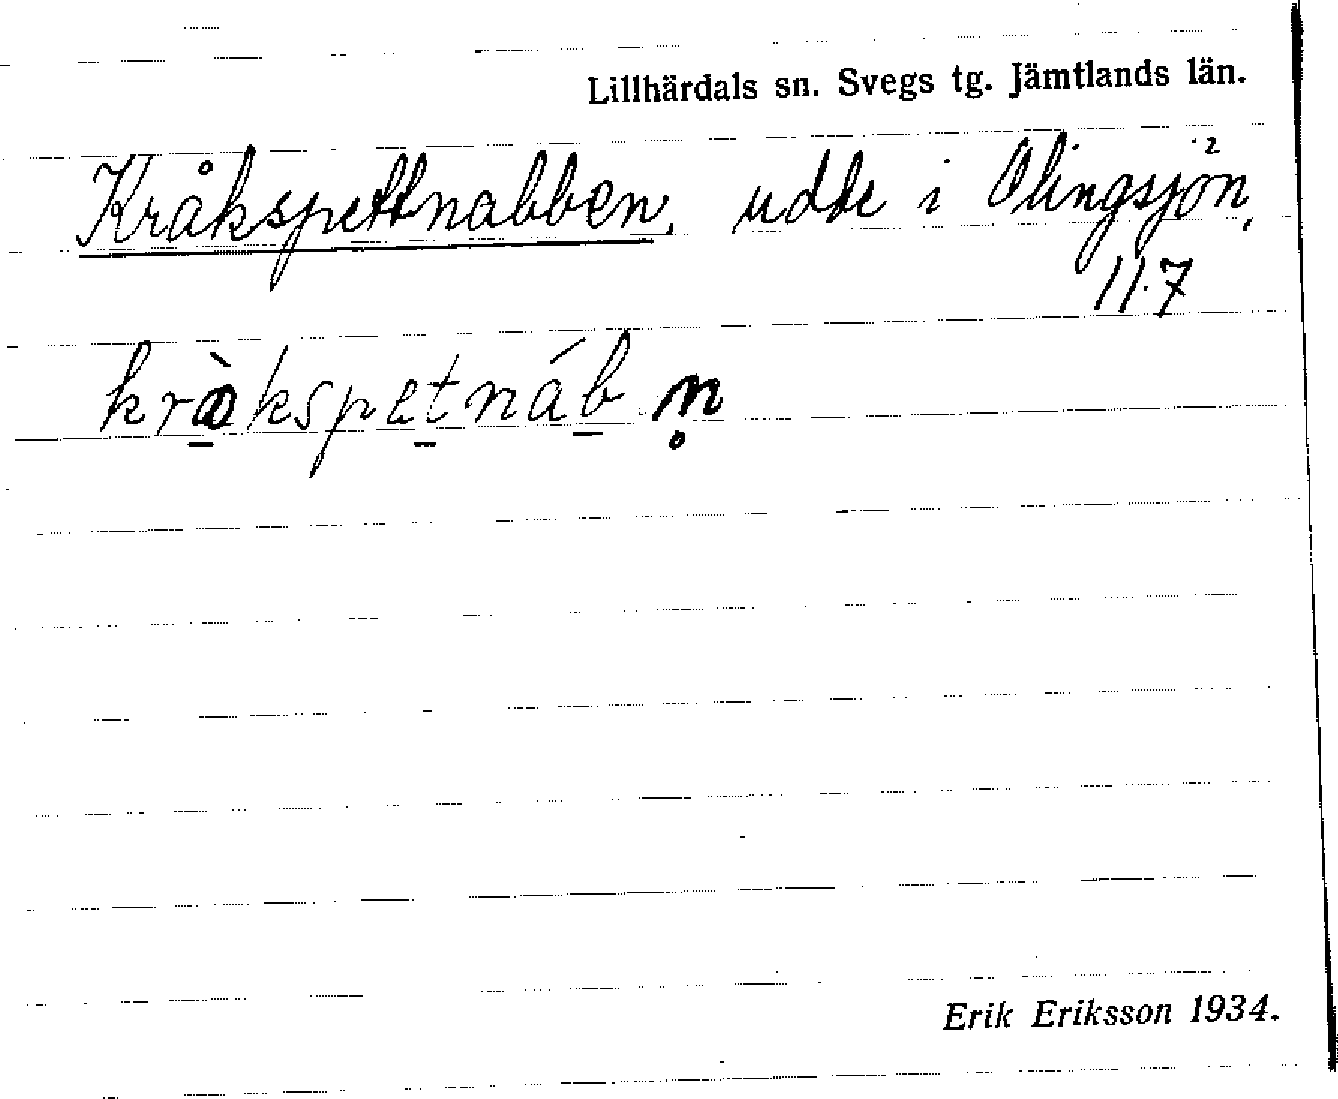 Lillhärdals sn. Svegs tg. Jämtlands län.
Kråkspettnabben, udde i Olingsjön,
117
kròkspetnábn̥
Erik Eriksson 1934.